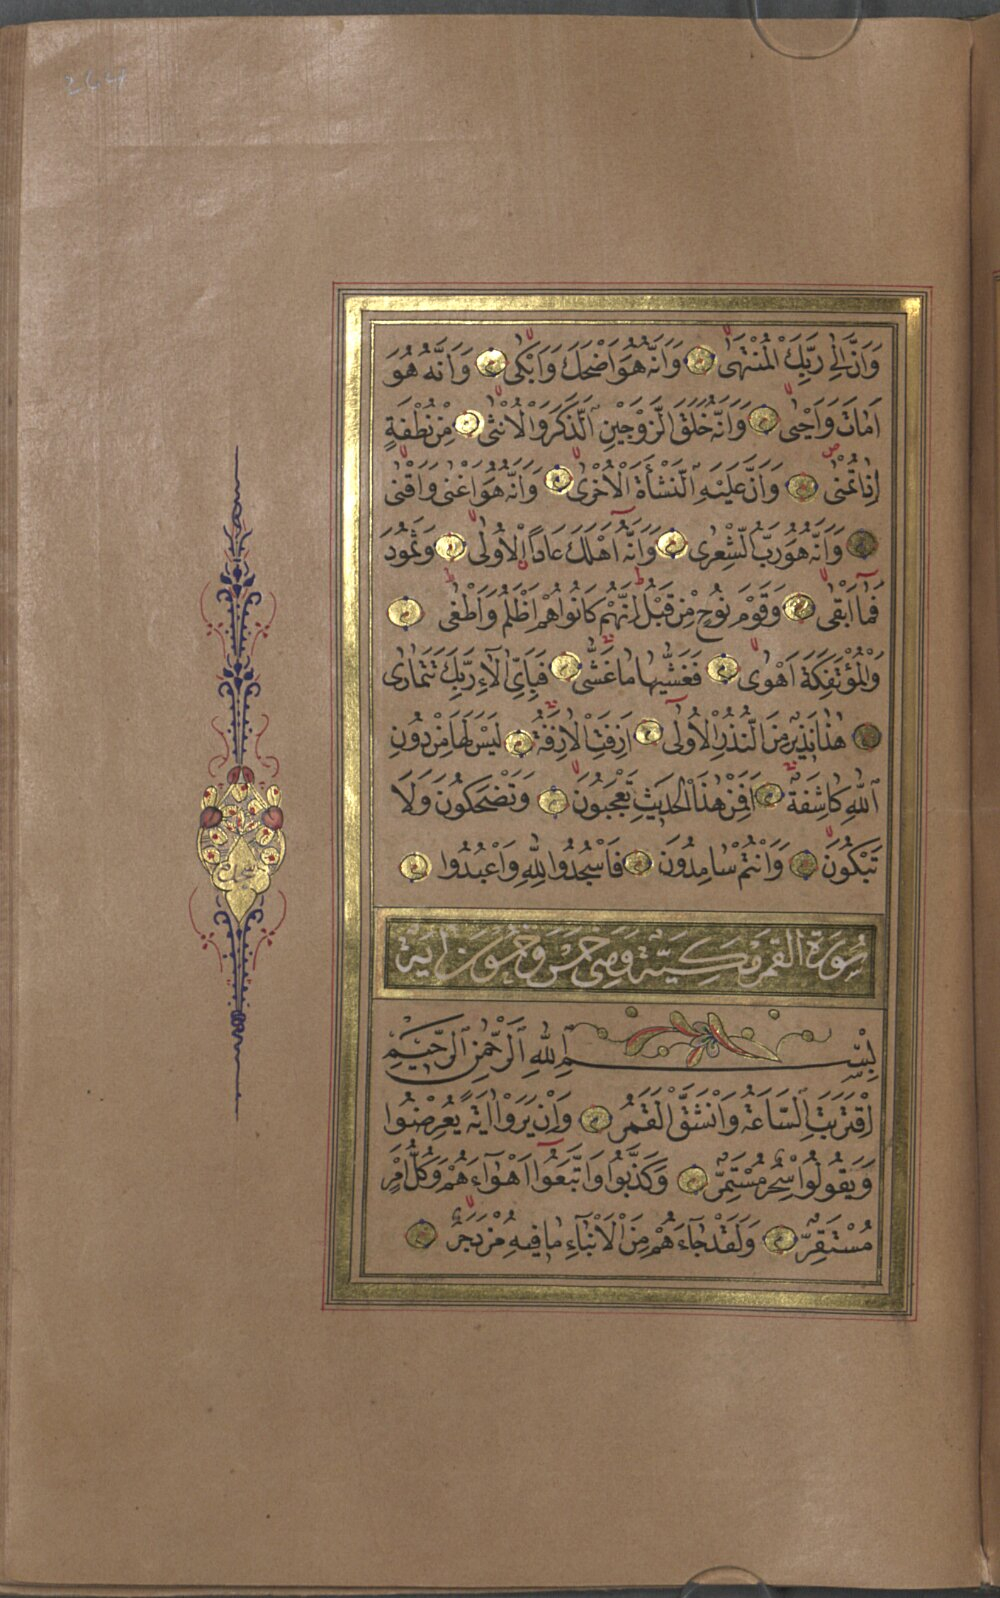 264
وَاَنَّ اِلٰى رَبِّكَ الْمُنْتَهٰىۙ وَاَنَّهُ هُوَ اَضْحَكَ وَاَبْكٰىۙ وَاَنَّهُ هُوَ
اَمَاتَ وَاَحْيٰىۙ وَاَنَّهُ خَلَقَ الزَّوْجَيْنِ الذَّكَرَ وَالْاُنْثٰىۙ مِنْ نُطْفَةٍ
اِذَا تُمْنٰىۖ وَاَنَّ عَلَيْهِ النَّشْاَةَ الْاُخْرٰىۙ وَاَنَّهُ هُوَ اَغْنٰى وَاَقْنٰىۙ
وَاَنَّهُ هُوَ رَبُّ الشِّعْرٰىۙ وَاَنَّهُٓ اَهْلَكَ عَادًا الْاُولٰىۙ وَثَمُودَ
فَمَٓا اَبْقٰىۙ وَقَوْمَ نُوحٍ مِنْ قَبْلُۜ اِنَّهُمْ كَانُوا هُمْ اَظْلَمَ وَاَطْغٰىۜ
وَالْمُؤْتَفِكَةَ اَهْوٰىۙ فَغَشّٰيهَا مَا غَشّٰىۚ فَبِاَىِّ اٰلَٓاءِ رَبِّكَ تَتَمَارٰى
هٰذَا نَذِيرٌ مِنَ النُّذُرِ الْاُولٰى اَزِفَتِ الْاٰزِفَةُۚ لَيْسَ لَهَا مِنْ دُونِ
اللّٰهِ كَاشِفَةٌۜ اَفَمِنْ هٰذَا الْحَدِيثِ تَعْجَبُونَۙ وَتَضْحَكُونَ وَلَا
تَبْكُونَۙ وَاَنْتُمْ سَامِدُونَ فَاسْجُدُوا لِلّٰهِ وَاعْبُدُوا
سُورَةُ الْقَمَرِ مَكِّيَّةٌ وَهِىَ خَمْسٌ وَخَمْسُونَ اٰيَةً
بِسْمِ اللّٰهِ الرَّحْمٰنِ الرَّحِيمِ
اِقْتَرَبَتِ السَّاعَةُ وَانْشَقَّ الْقَمَرُ وَاِنْ يَرَوْا اٰيَةً يُعْرِضُوا
وَيَقُولُوا سِحْرٌ مُسْتَمِرٌّ وَكَذَّبُوا وَاتَّبَعُٓوا اَهْوَٓاءَهُمْ وَكُلُّ اَمْرٍ
مُسْتَقِرٌّ وَلَقَدْ جَٓاءَهُمْ مِنَ الْاَنْبَٓاءِ مَا فِيهِ مُزْدَجَرٌۙ